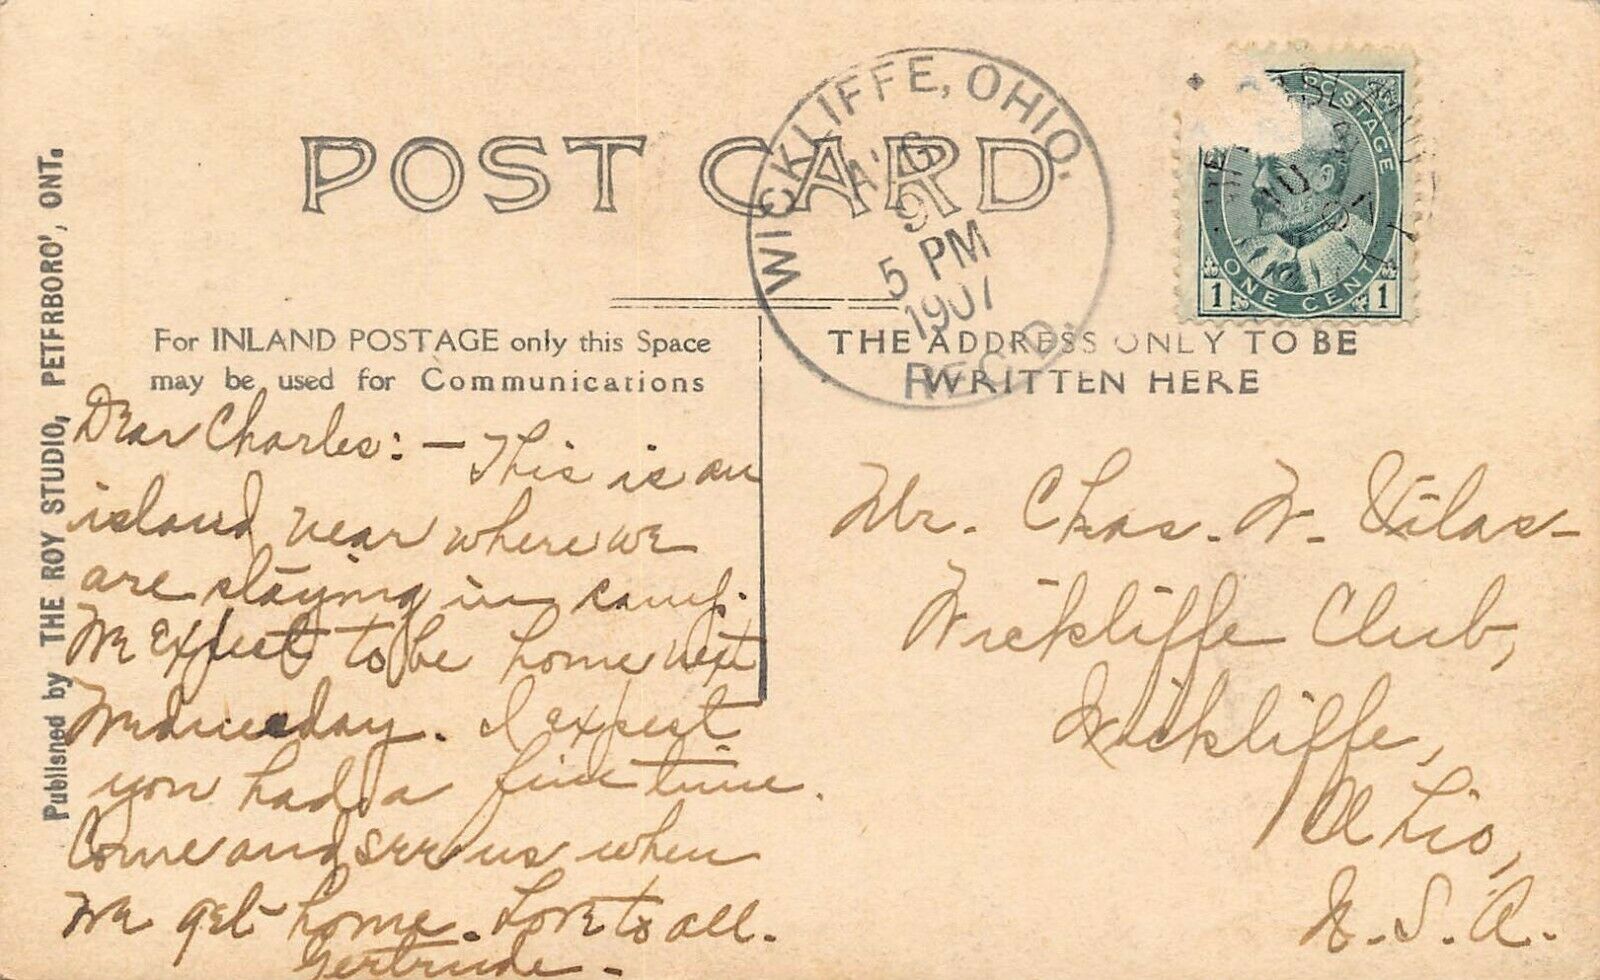 POST CARD
WICKLIFFE, OHIO.
AUG
9
5 PM
1907
REC'D.
POSTAGE
ONE CENT
1 1
Published by THE ROY STUDIO, PETERBORO', ONT.
For INLAND POSTAGE only this Space
may be used for Communications
THE ADDRESS ONLY TO BE
WRITTEN HERE
Dear Charles: — This is an
island near where we
are staying in camp.
We expect to be home next
Wednesday. I expect
you had a fine time.
Come and see us when
we get home. Love to all.
Gertrude.
Mr. Chas. W. Vilas
Wickliffe Club,
Wickliffe,
Ohio,
U.S.A.